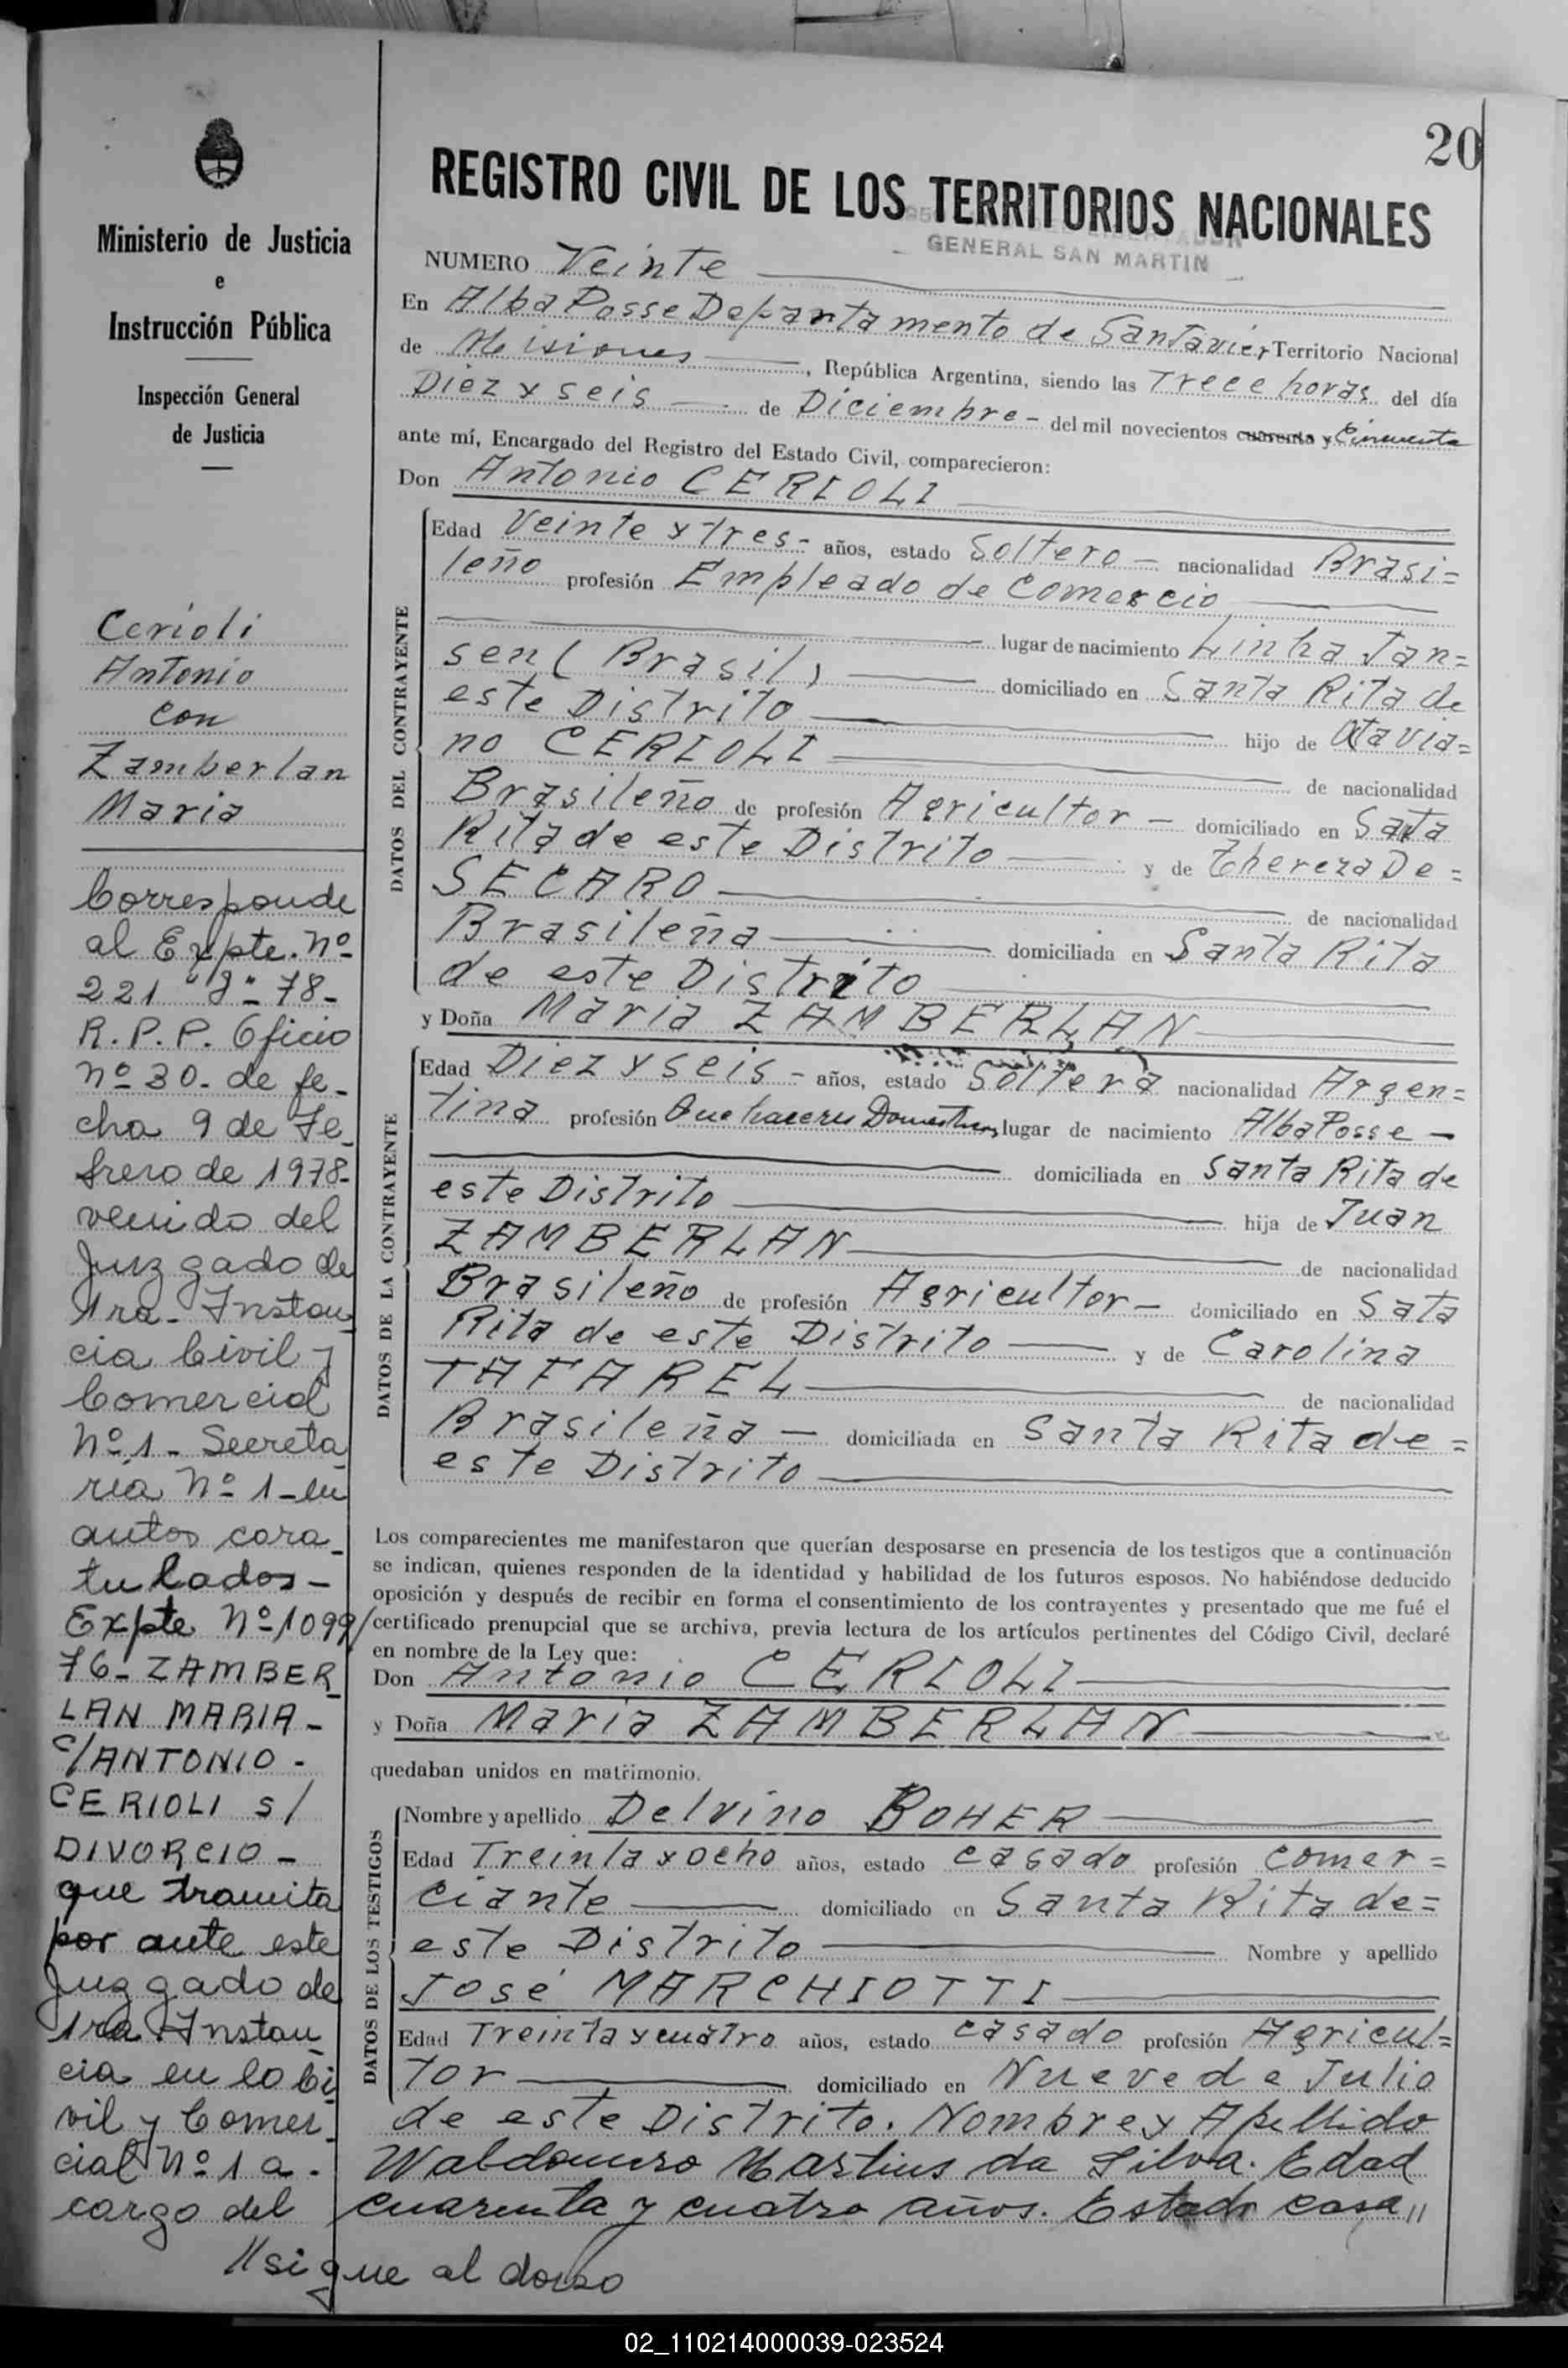 20
REGISTRO CIVIL DE LOS TERRITORIOS NACIONALES
GENERAL SAN MARTIN
Ministerio de Justicia
e
Instrucción Pública
Inspección General
de Justicia
Cerioli
Antonio
con
Zamberlan
Maria
Corresponde
al Expte. Nº
221 "J" 78-
R.P.P. Oficio
nº 30- de fe-
cha 9 de Fe-
brero de 1978-
venido del
Juzgado de
1ra- Instan
cia Civil y
Comercial
Nº 1- Secreta
ría Nº 1- en
autos cara-
tulados-
Expte Nº 1099/
76- ZAMBER
LAN MARIA-
C/ANTONIO-
CERIOLI s/
DIVORCIO-
que tramita
por ante este
Juzgado de
1ra Instan
cia en lo Ci
vil y Comer
cial Nº 1 a-
cargo del
NUMERO Veinte
En Alba Posse Departamento de San Javier, Territorio Nacional
de Misiones, República Argentina, siendo las Trece horas del día
Diez y seis de Diciembre - del mil novecientos cuarenta y Cincuenta
ante mí, Encargado del Registro del Estado Civil, comparecieron:
Don Antonio CERIOLI
DATOS DEL CONTRAYENTE
Edad Veinte y Tres - años, estado Soltero - nacionalidad Brasi=
leño profesión Empleado de Comercio
lugar de nacimiento Linha Jan=
sen (Brasil) domiciliado en Santa Rita de
este Distrito hijo de Otavia=
no CERIOLI de nacionalidad
Brasileño de profesión Agricultor - domiciliado en Sata
Rita de este Distrito y de Thereza De=
SECARO de nacionalidad
Brasileña domiciliada en Santa Rita
de este Distrito
y Doña Maria ZAMBERLAN
DATOS DE LA CONTRAYENTE
Edad Diez y seis - años, estado Soltera nacionalidad Argen=
tina profesión Quehaceres Domesticos lugar de nacimiento Alba Posse -
domiciliada en Santa Rita de
este Distrito hija de Juan
ZAMBERLAN de nacionalidad
Brasileño de profesión Agricultor - domiciliado en Sata
Rita de este Distrito y de Carolina
TAFAREL de nacionalidad
Brasileña - domiciliada en Santa Rita de=
este Distrito
Los comparecientes me manifestaron que querían desposarse en presencia de los testigos que a continuación
se indican, quienes responden de la identidad y habilidad de los futuros esposos. No habiéndose deducido
oposición y después de recibir en forma el consentimiento de los contrayentes y presentado que me fué el
certificado prenupcial que se archiva, previa lectura de los artículos pertinentes del Código Civil, declaré
en nombre de la Ley que:
Don Antonio CERIOLI
y Doña Maria ZAMBERLAN
quedaban unidos en matrimonio.
DATOS DE LOS TESTIGOS
Nombre y apellido Delvino BOHER
Edad Treinta y ocho años, estado casado profesión comer=
ciante domiciliado en Santa Rita de=
este Distrito Nombre y apellido
José MARCHIOTTI
Edad Treinta y cuatro años, estado casado profesión Agricul=
tor domiciliado en Nueve de Julio
de este Distrito. Nombre y Apellido
Waldomiro Martins da Silva. Edad
cuarenta y cuatro años. Estado casa//
//sigue al dorso
02_110214000039-023524